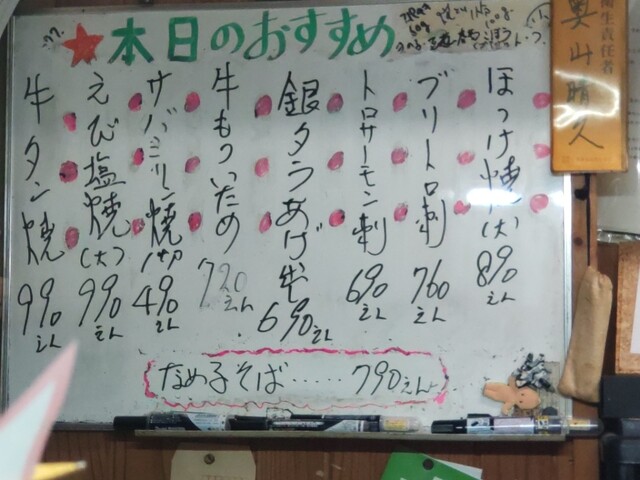 ★本日のおすすめ
ほっけ焼(大) 890えん
ブリトロ刺 760えん
トロサーモン刺 690えん
銀タラあげ出 690えん
牛もついため 720えん
サバミリン焼 490えん
えび塩焼(大) 990えん
牛タン焼 990えん
なめ子そば……790えん
衛生責任者
奥山晴久